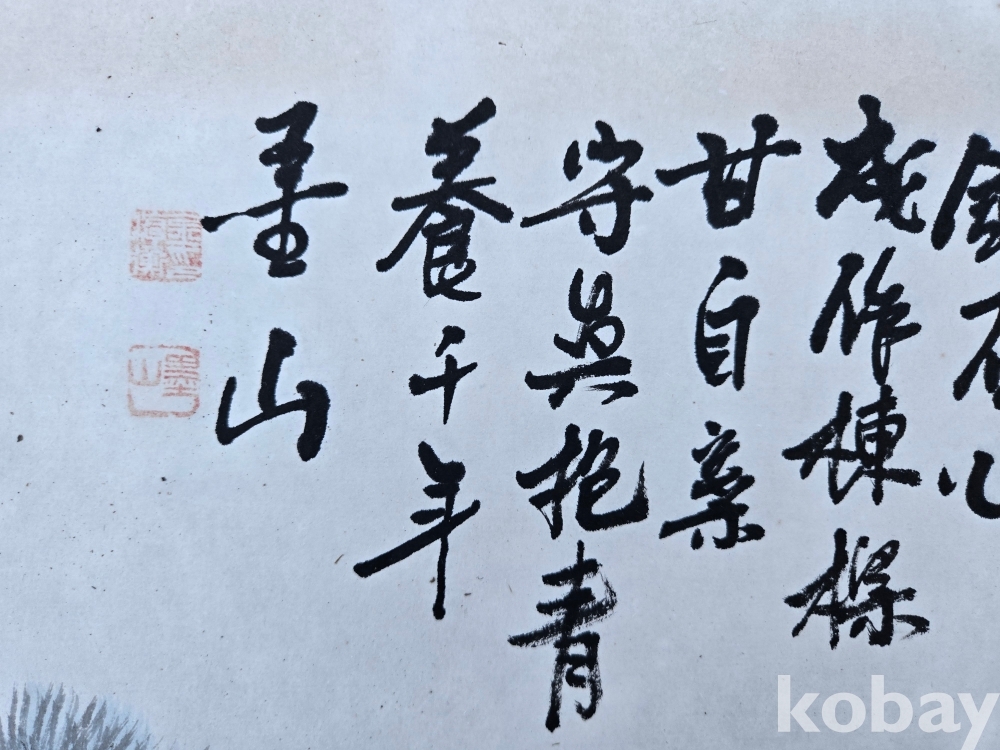 作棟樑
甘自棄
守真抱青
養千年
墨山
墨山
kobay